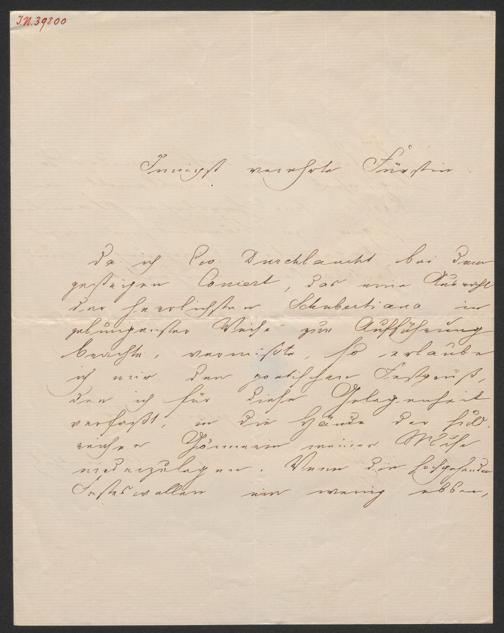 I.N. 39200
Innigst verehrte Fürstin
da ich Euer Durchlaucht bei dem
gestrigen Concert, das eine Auswahl
der herrlichsten Schubertiana in
gelungenster Weise zur Aufführung
brachte, vermißte, so erlaube
ich mir den poetischen Festgruß,
den ich für diese Gelegenheit
verfaßt, in die Hände der
Gönnerin meiner Muse
niederzulegen. Wenn die hochgehenden
Festeswellen ein wenig ebben,